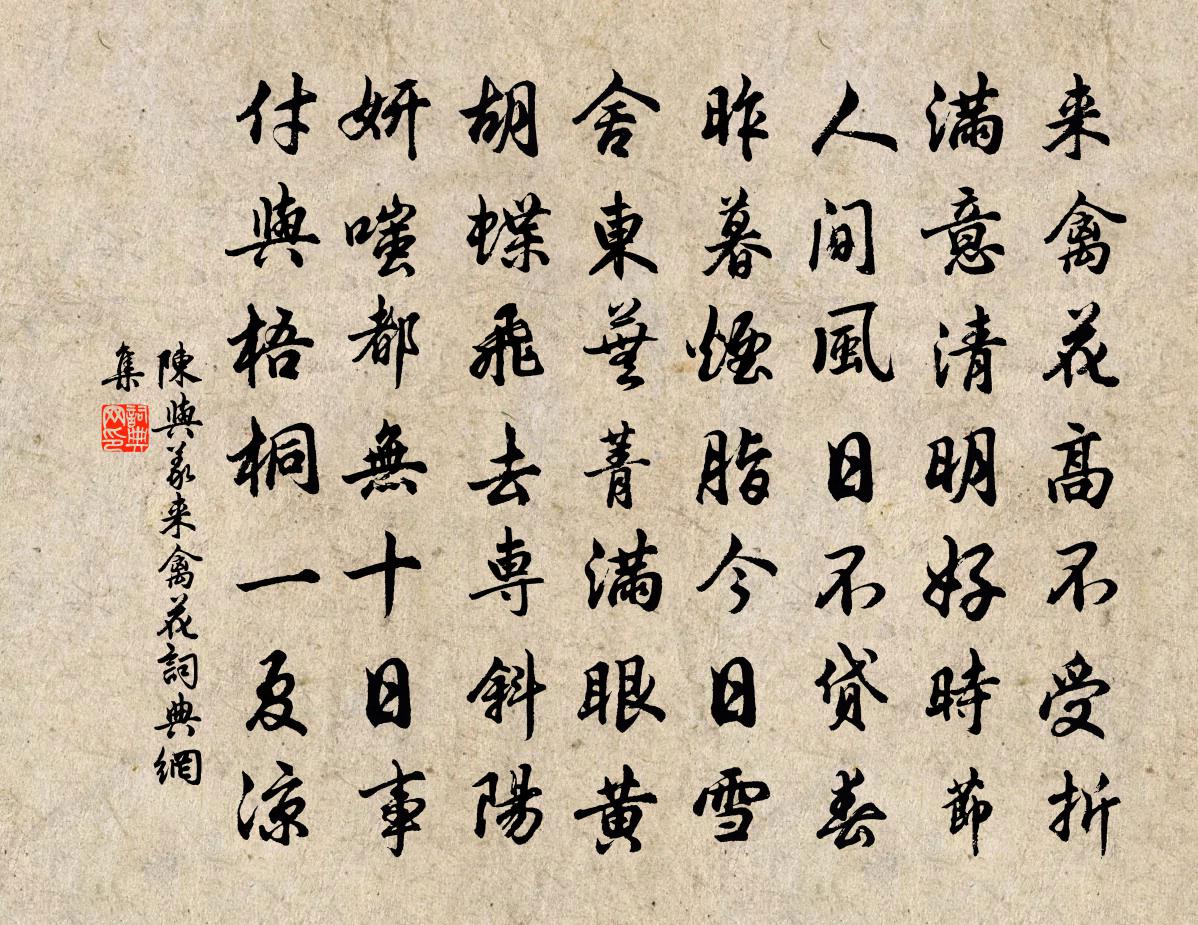 来禽花高不受折
满意清明好時節
人間風日不貸春
昨暮煙脂今日雪
舍東蕪菁满眼黄
胡蝶飛去専斜陽
妍嗤都無十日事
付與梧桐一夏凉
陳與義来禽花詞典網
集
詞典
网印